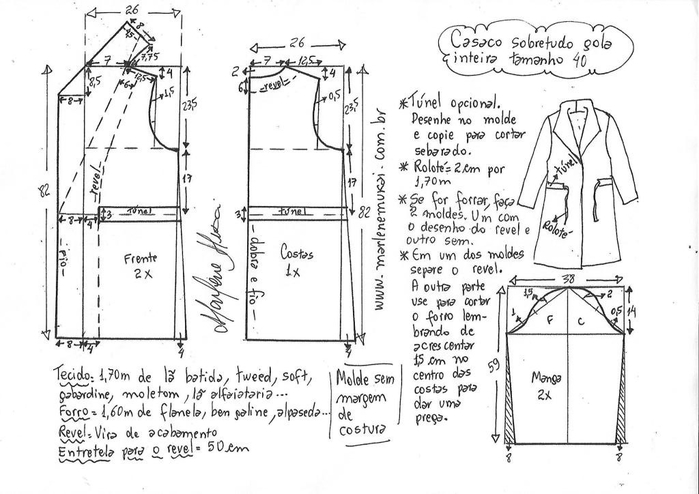 Casaco sobretudo gola
inteira tamanho 40
26
8
15
7,75
7
12,5
6
4
8,5
1,5
23,5
8
revel
82
17
8
4
3
Túnel
fio
Frente
2x
8
4
4
26
7
12,5
2
6
revel
4
0,5
23,5
17
82
3
Túnel
dobra e fio
Costas
1x
4
www.marlenemukai.com.br
* Túnel opcional.
Desenhe no molde
e copie para cortar
sebarado.
* Rolotês 2cm por
1,70m
* Se for forrar, faça
2 moldes. Um com
o desenho do revel e
outro sem.
* Em um dos moldes
separe o revel.
A outra parte
use para cortar
o forro lem-
brando de
acrescentar
15 cm no
centro das
costas para
dar uma
prega.
Túnel
Rolotê
38
1,5
2
1
0,5
F
C
14
59
Manga
2x
8
8
Tecido = 1,70m de lã batida, tweed, soft,
gabardine, moletom, lã alfaiataria...
Forro = 1,60m de flanela, bengaline, alpaseda...
Revel = Vira de acabamento
Entretela para o revel = 50cm
Molde sem
margem
de
costura